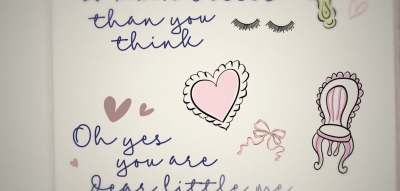 than you
think
Oh yes
you are
Dear little me